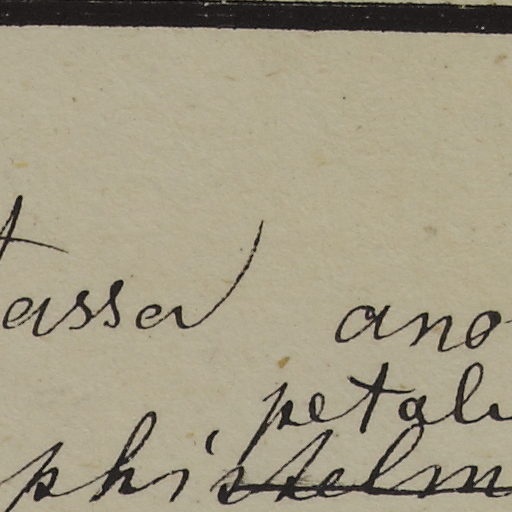 tassed ano
petalu
phistelm